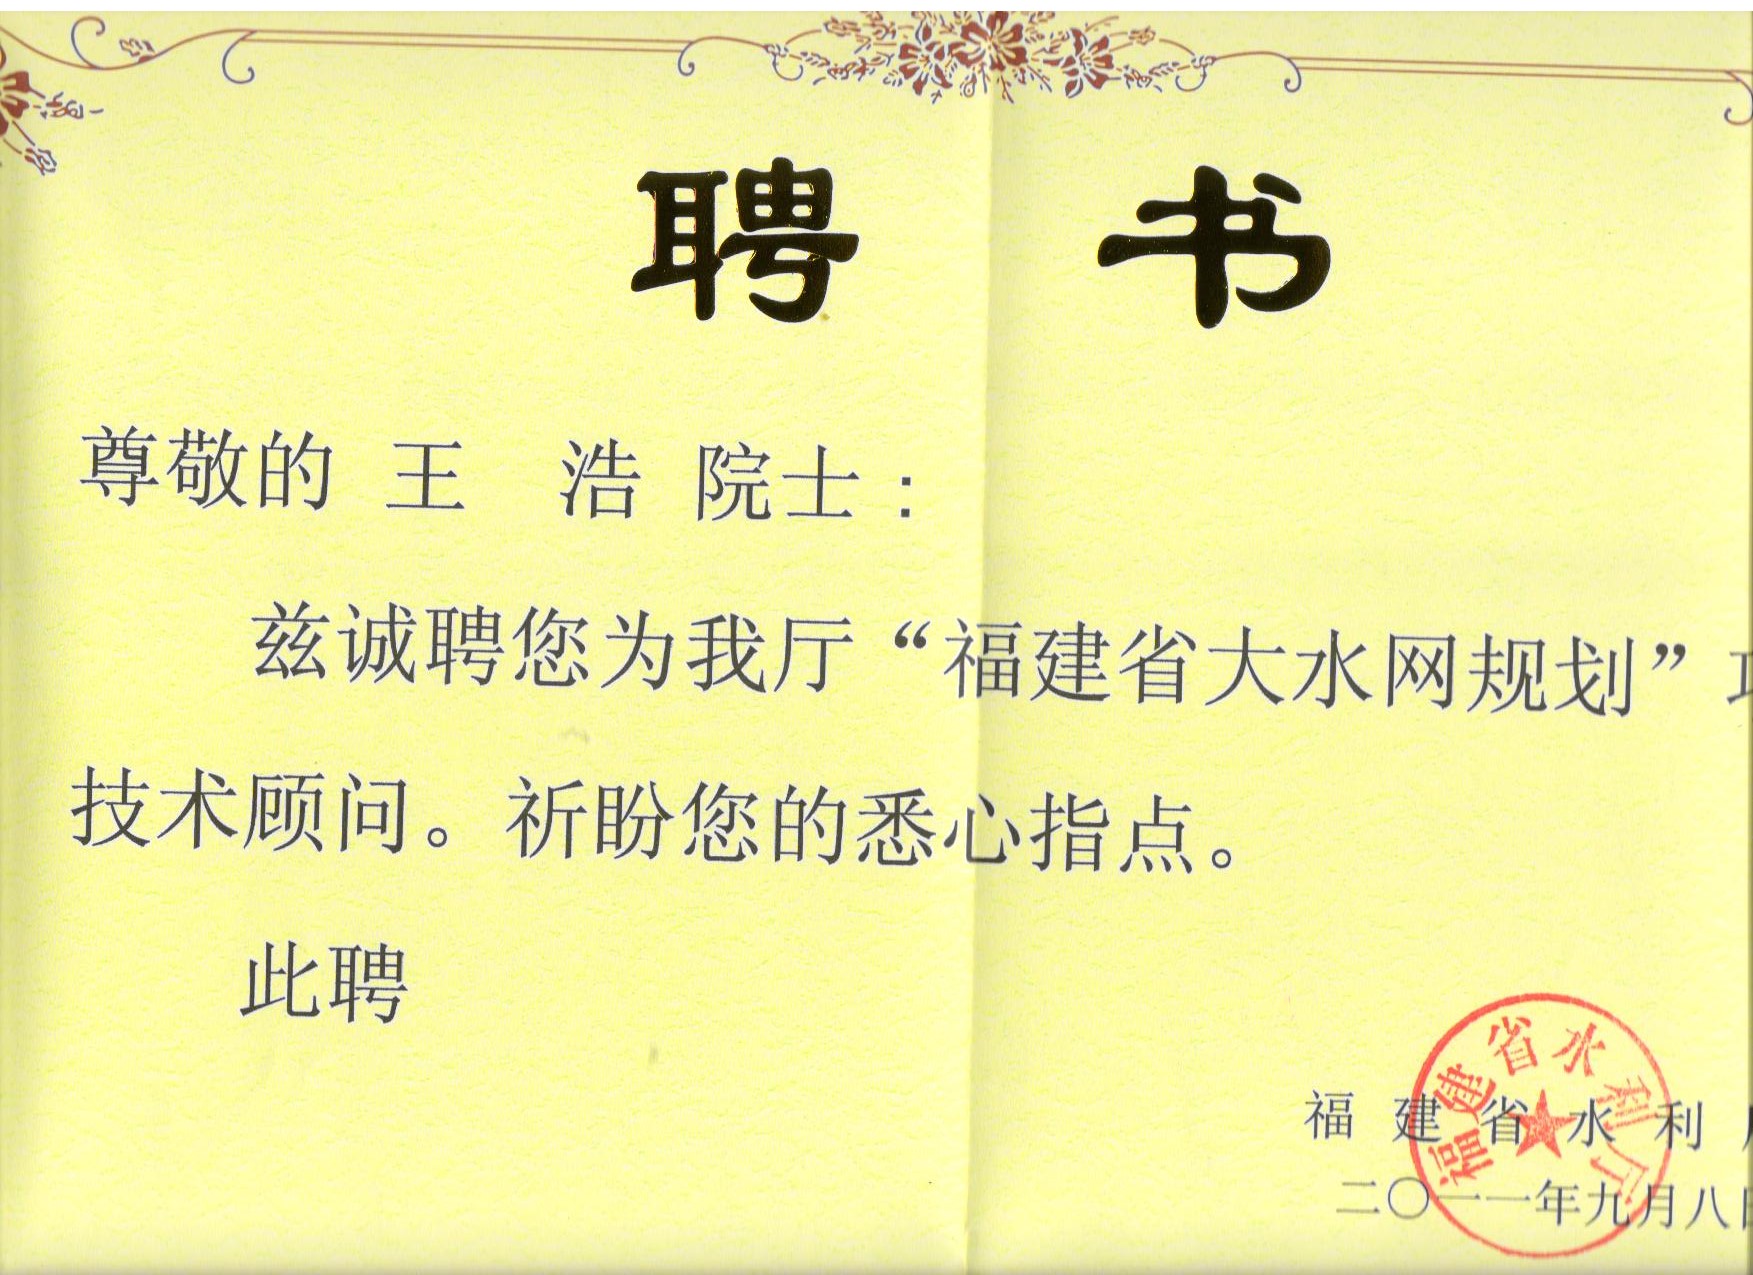 聘 书
尊敬的 王 浩 院士：
兹诚聘您为我厅“福建省大水网规划”
技术顾问。祈盼您的悉心指点。
此聘
福建省水利厅
福 建 省 水 利
二〇一一年九月八日